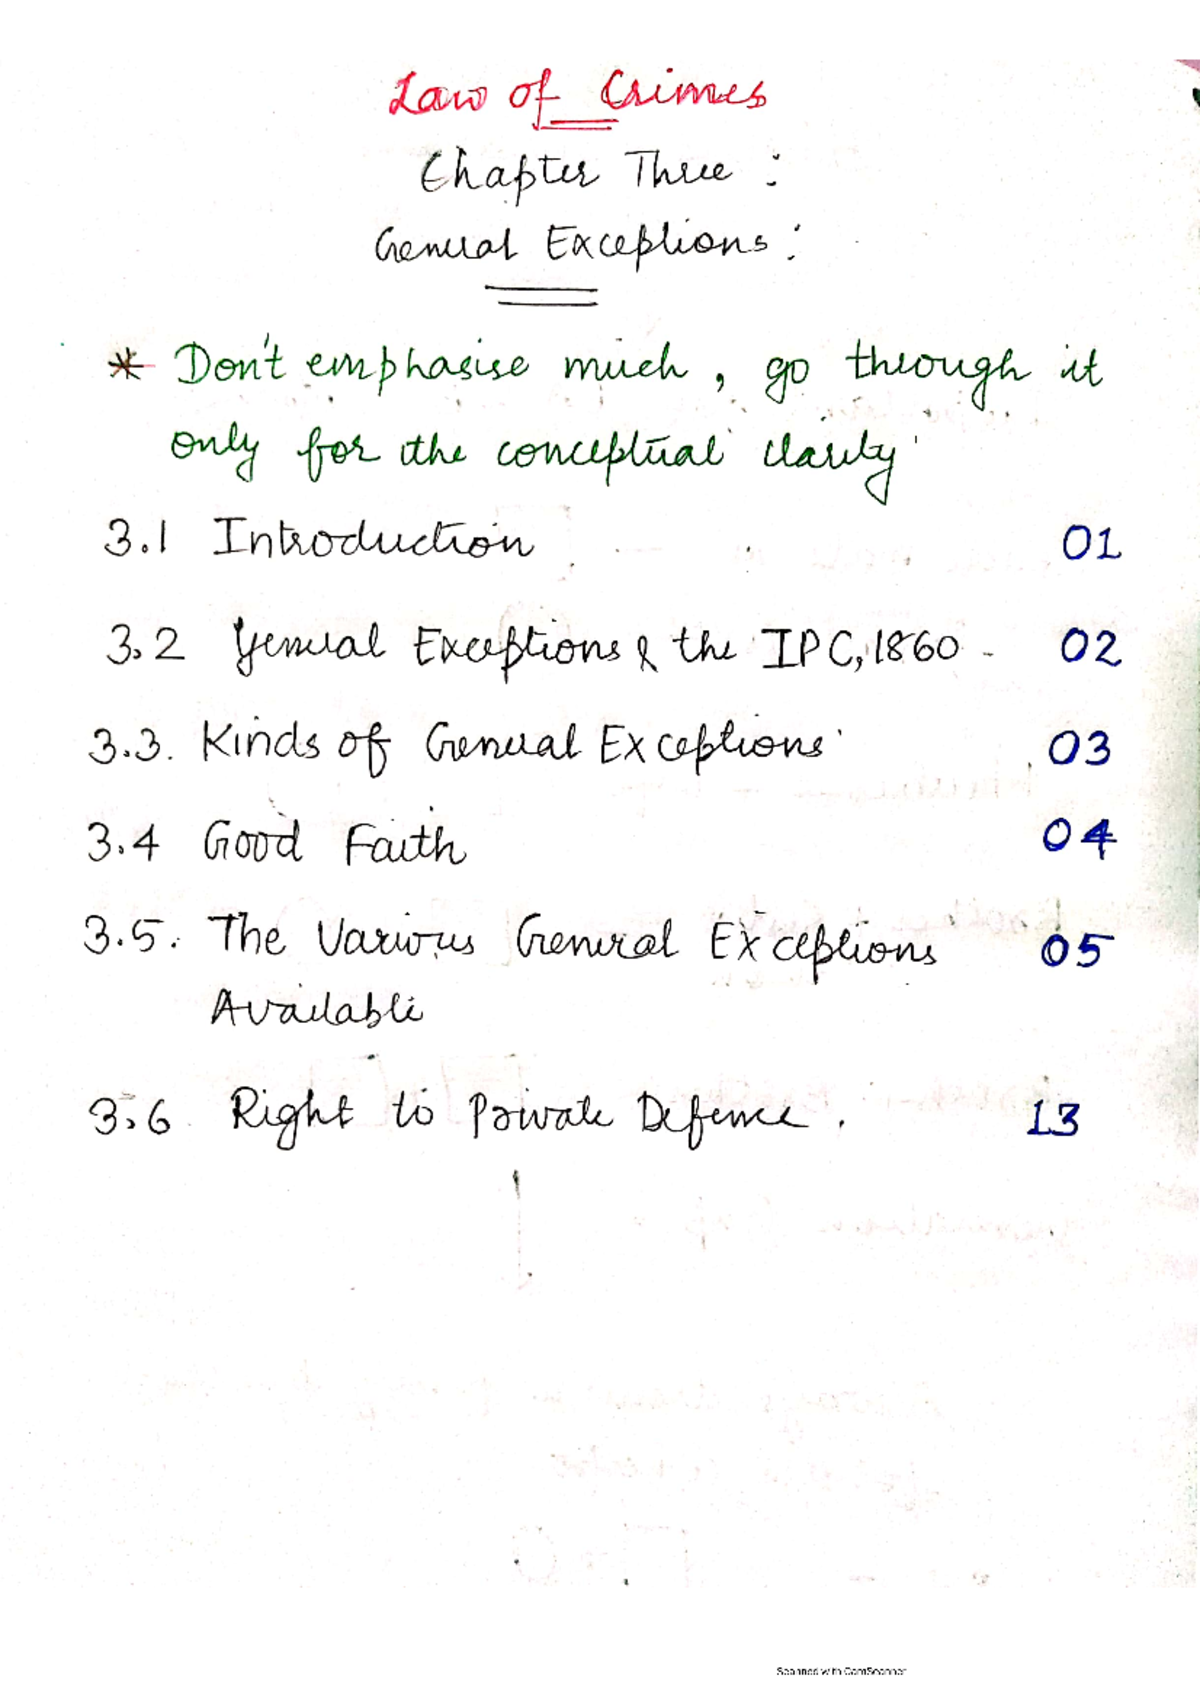 Law of Crimes
Chapter Three :
General Exceptions :
* Don't emphasise much, go through it
only for the conceptual clarity
3.1 Introduction 01
3.2 General Exceptions & the IPC, 1860 - 02
3.3. Kinds of General Exceptions 03
3.4 Good Faith 04
3.5. The Various General Exceptions 05
Available
3.6 Right to Private Defence. 13
Scanned with CamScanner